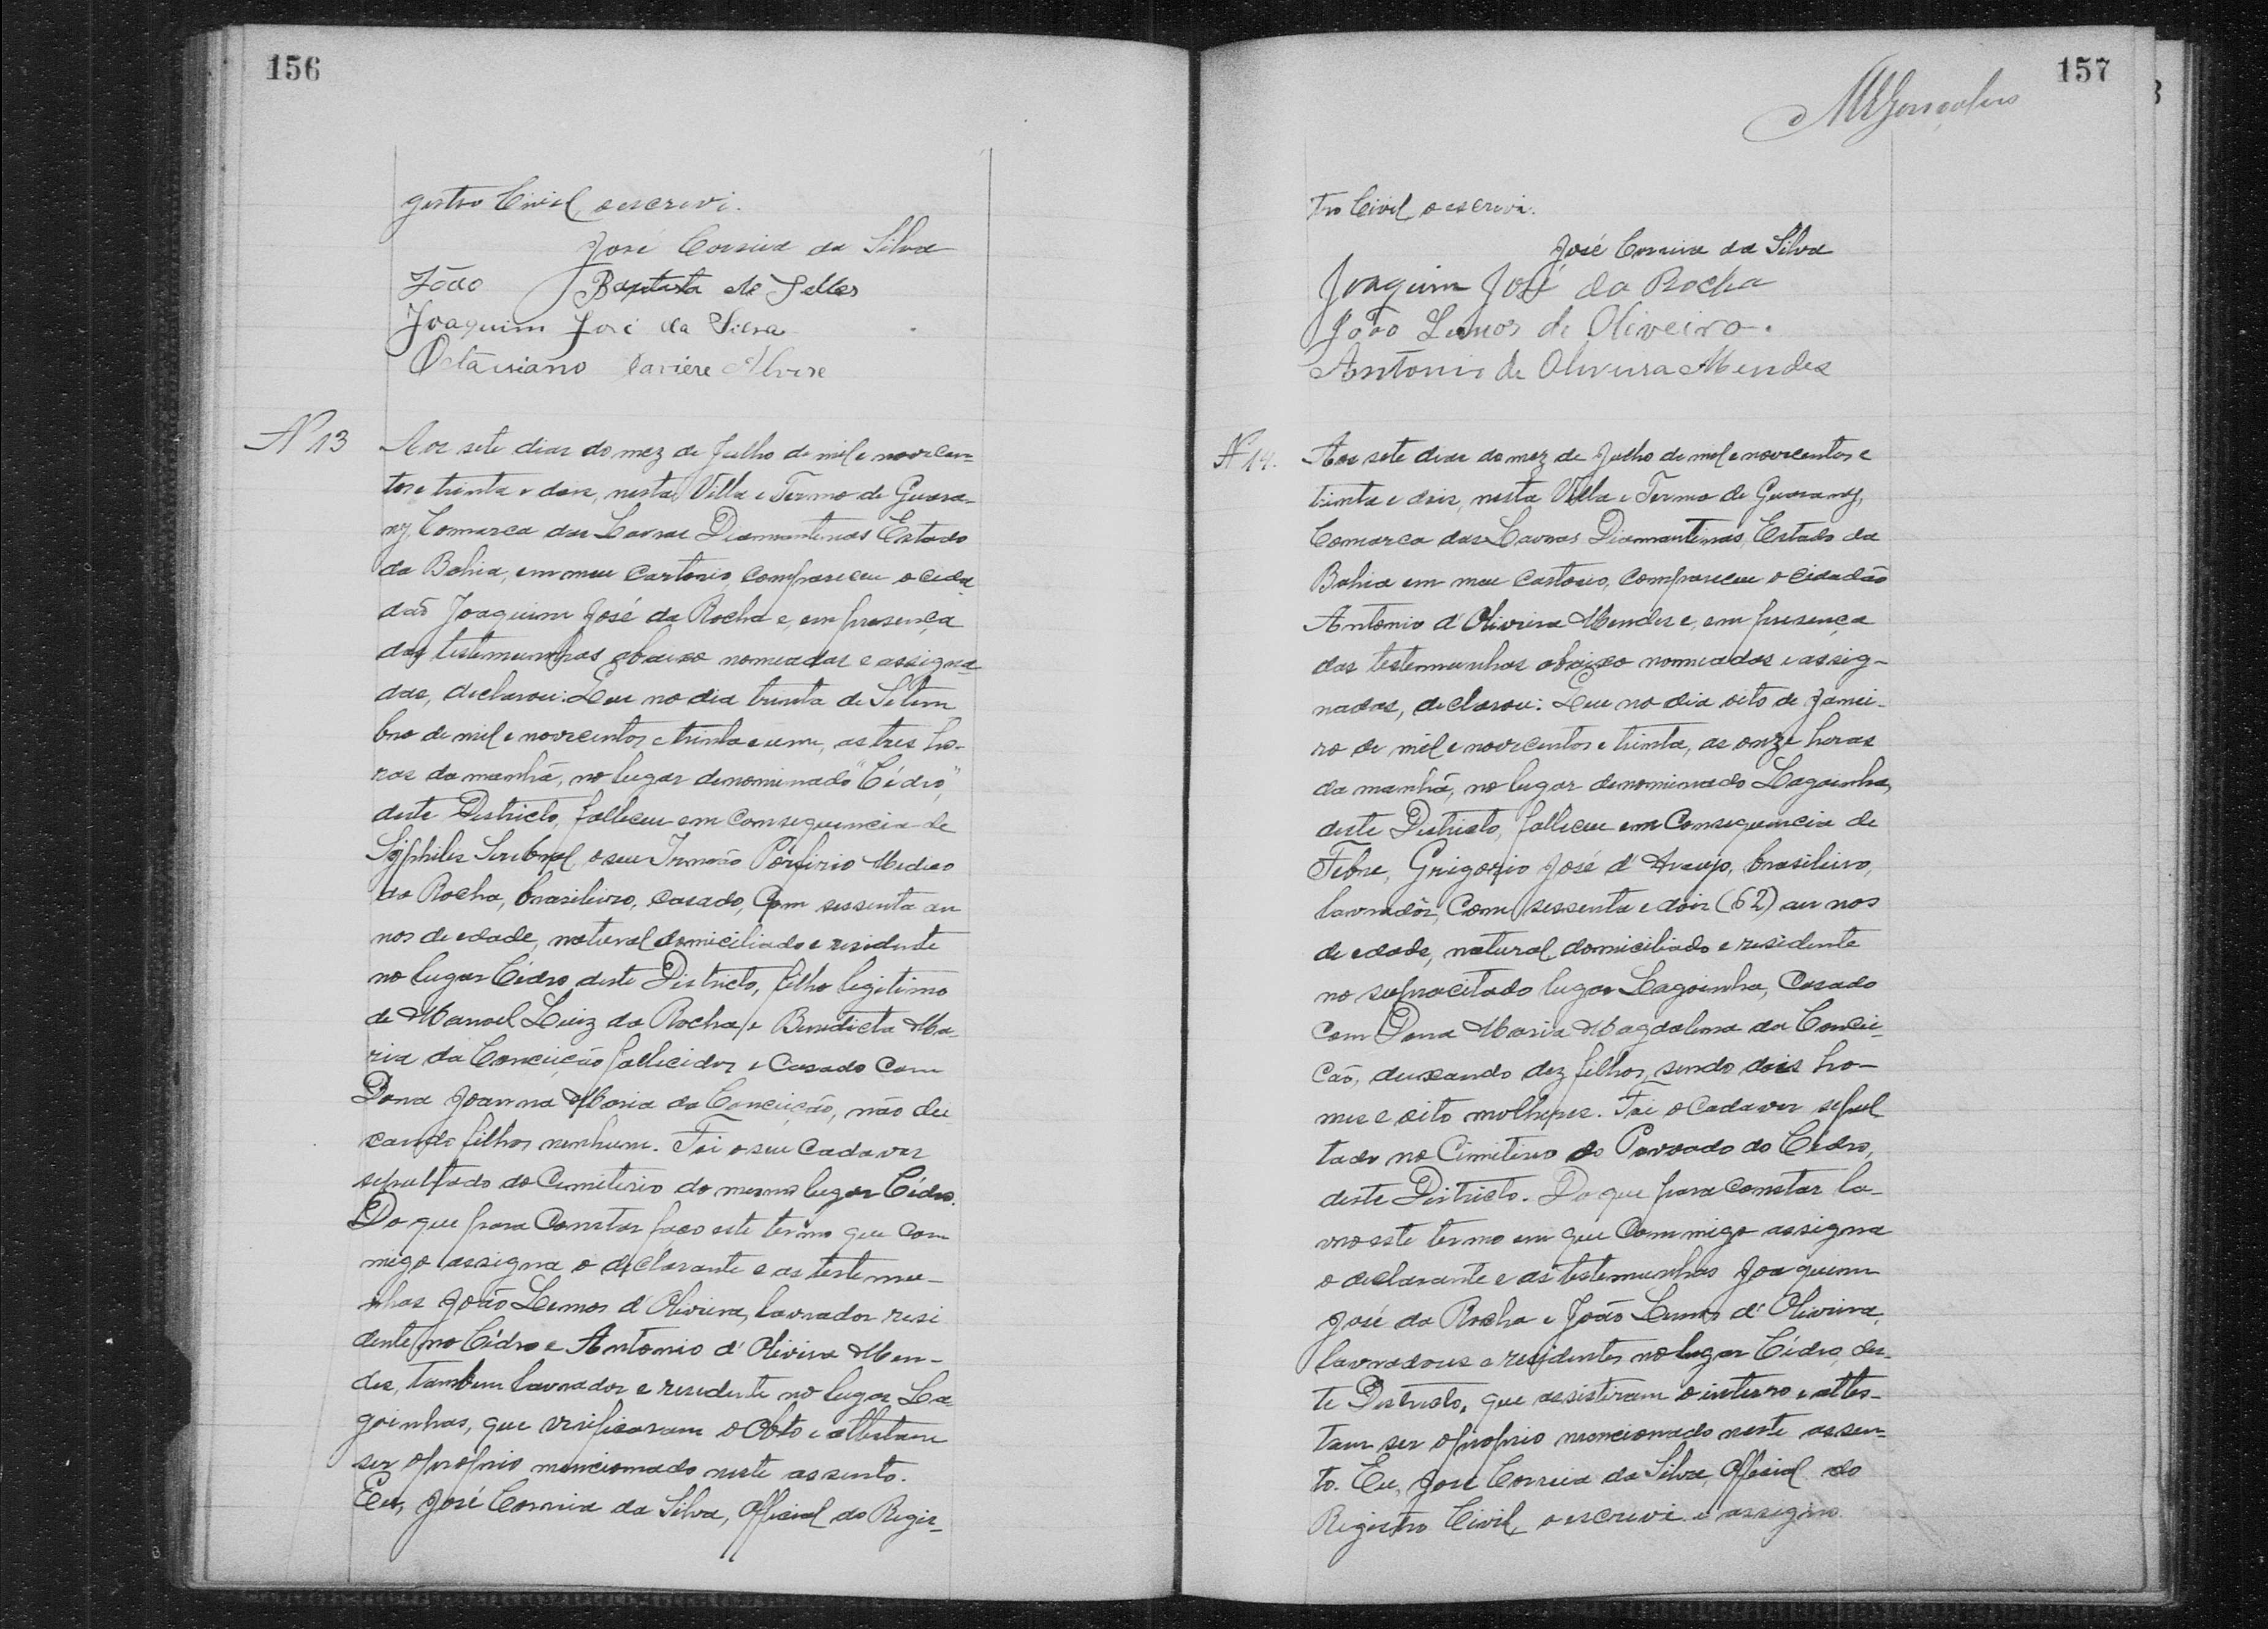 156
gistro Civil, o escrevi.
José Correia da Silva
João Baptista de Telles
Joaquim José da Silva
Octaviano Alves
Nº 13
Aos sete dias do mez de Julho de mil e novecen-
tos e trinta e dois, nesta Villa e Termo de Guara-
ny, Comarca das Lavras Diamantinas Estado
da Bahia, em meu Cartorio, compareceu o cida-
dão Joaquim José da Rocha e, em presença
das testemunhas abaixo nomeadas e assigna-
das, declarou: Que no dia trinta de Setem
bro de mil e novecentos e trinta e um, as tres ho-
ras da manhã, no lugar denominado "Cédro",
deste Districto, falleceu em consequencia de
Syphiles o seu Irmão Porfirio
da Rocha, brasileiro, casado, com sessenta an
nos de edade, natural domiciliado e residente
no lugar Cédro, deste Districto, filho legitimo
de Manoel Luiz da Rocha e Benedicta Ma-
ria da Conceição fallecidos e Casado com
Dona Joanna Maria da Conceição, não dei
xando filhos nenhum. Foi o seu cadaver
sepultado do Cemiterio do mesmo lugar Cédro.
Do que para constar faço este termo que com
migo assigna o declarante e as testemu-
nhas João Lemos d'Oliveira, lavrador resi
dente no Cédro e Antonio d'Oliveira Men-
des, tambem lavrador e residente no lugar La-
goinhas, que verificaram o obto e attestam
ser o proprio mencionado neste assento.
Eu, José Correia da Silva, Official do Regis-
157
MGonçalves
tro Civil, o escrevi.
José Correia da Silva
Joaquim José da Rocha
João Lemos de Oliveira.
Antonio de Oliveira Mendes
Nº 14.
Aos sete dias do mez de Julho de mil e novecentos e
trinta e dois, nesta Villa e Termo de Guarany,
Comarca das Lavras Diamantinas, Estado da
Bahia em meu Cartorio, compareceu o cidadão
Antonio d'Oliveira Mendes e, em presença
das testemunhas abaixo nomeadas e assig-
nadas, declarou: Que no dia oito de Janei-
ro de mil e novecentos e trinta, as onze horas
da manhã, no lugar denominado Lagoinha,
deste Districto, falleceu em consequencia de
Febre, Grigorio José d'Araujo, brasileiro,
lavradôr, com sessenta e dois (62) an nos
de edade, natural domiciliado e residente
no supracitado lugar Lagoinha, Casado
com Dona Maria Magdalena da Concei-
ção, deixando dez filhos, sendo dois ho-
mes e oito mulheres. Foi o cadaver sepul
tado no Cimiterio do Povoado do Cedro,
deste Districto. Do que para constar la-
vro este termo em que commigo assigna
o declarante e as testemunhas Joaquim
José da Rocha e João Lemos d'Oliveira,
lavradores e residentes no lugar Cédro, des-
te Districto, que assistiram o interro e attes-
tam ser o proprio mencionado neste assen-
to. Eu, José Correia da Silva, Official do
Registro Civil, o escrevi e assigno